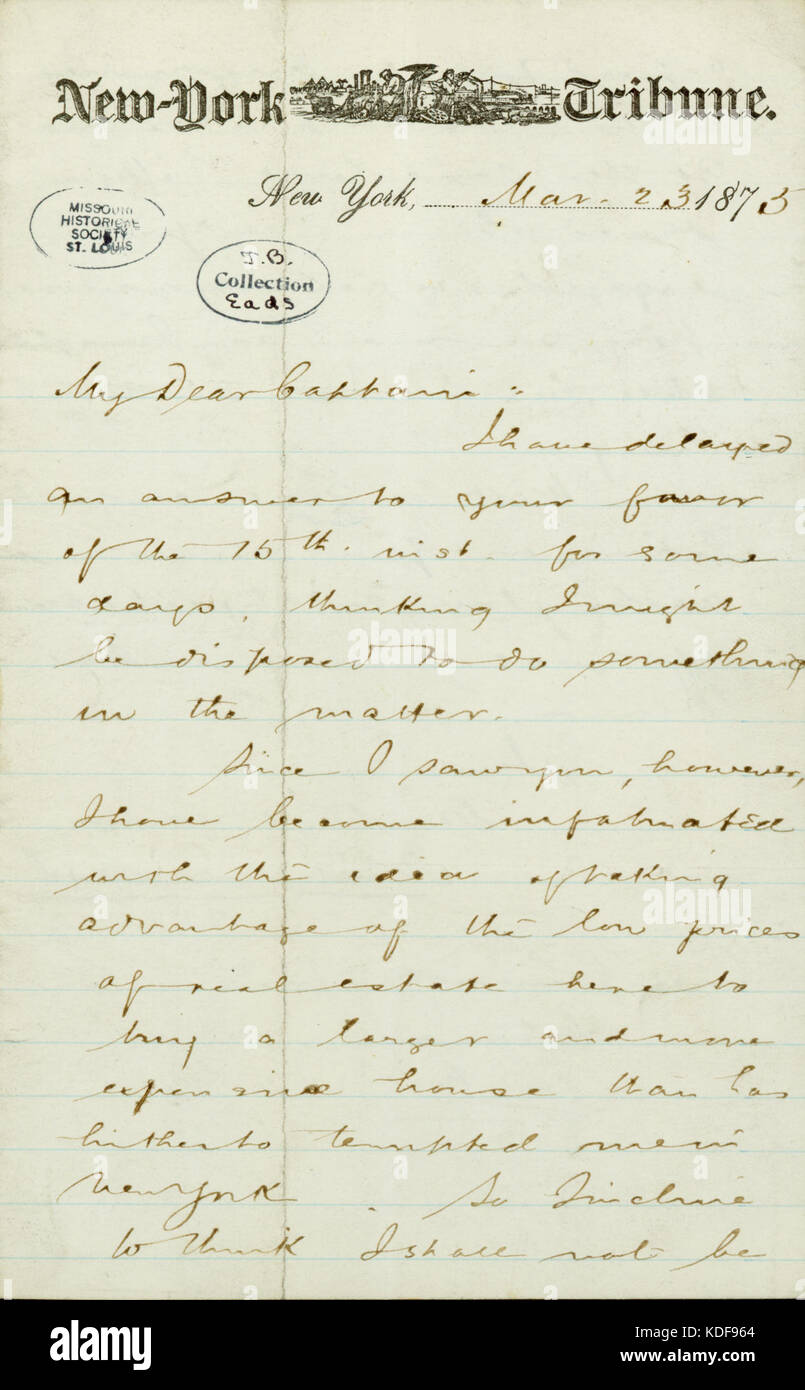 New-York Tribune.
New York, Mar. 23 1875
MISSOURI
HISTORICAL
SOCIETY
ST. LOUIS
J.B.
Collection
Eads
My Dear Captain:
I have delayed
an answer to your favor
of the 15th. inst. for some
days, thinking I might
be disposed to do something
in the matter.
Since I saw you, however,
I have become infatuated
with the idea of taking
advantage of the low prices
of real estate here to
buy a larger and more
expensive house than has
hitherto tempted me in
New York. So I incline
to think I shall not be
alamy
a
alamy
a
alamy
Image ID: KDF964
www.alamy.com